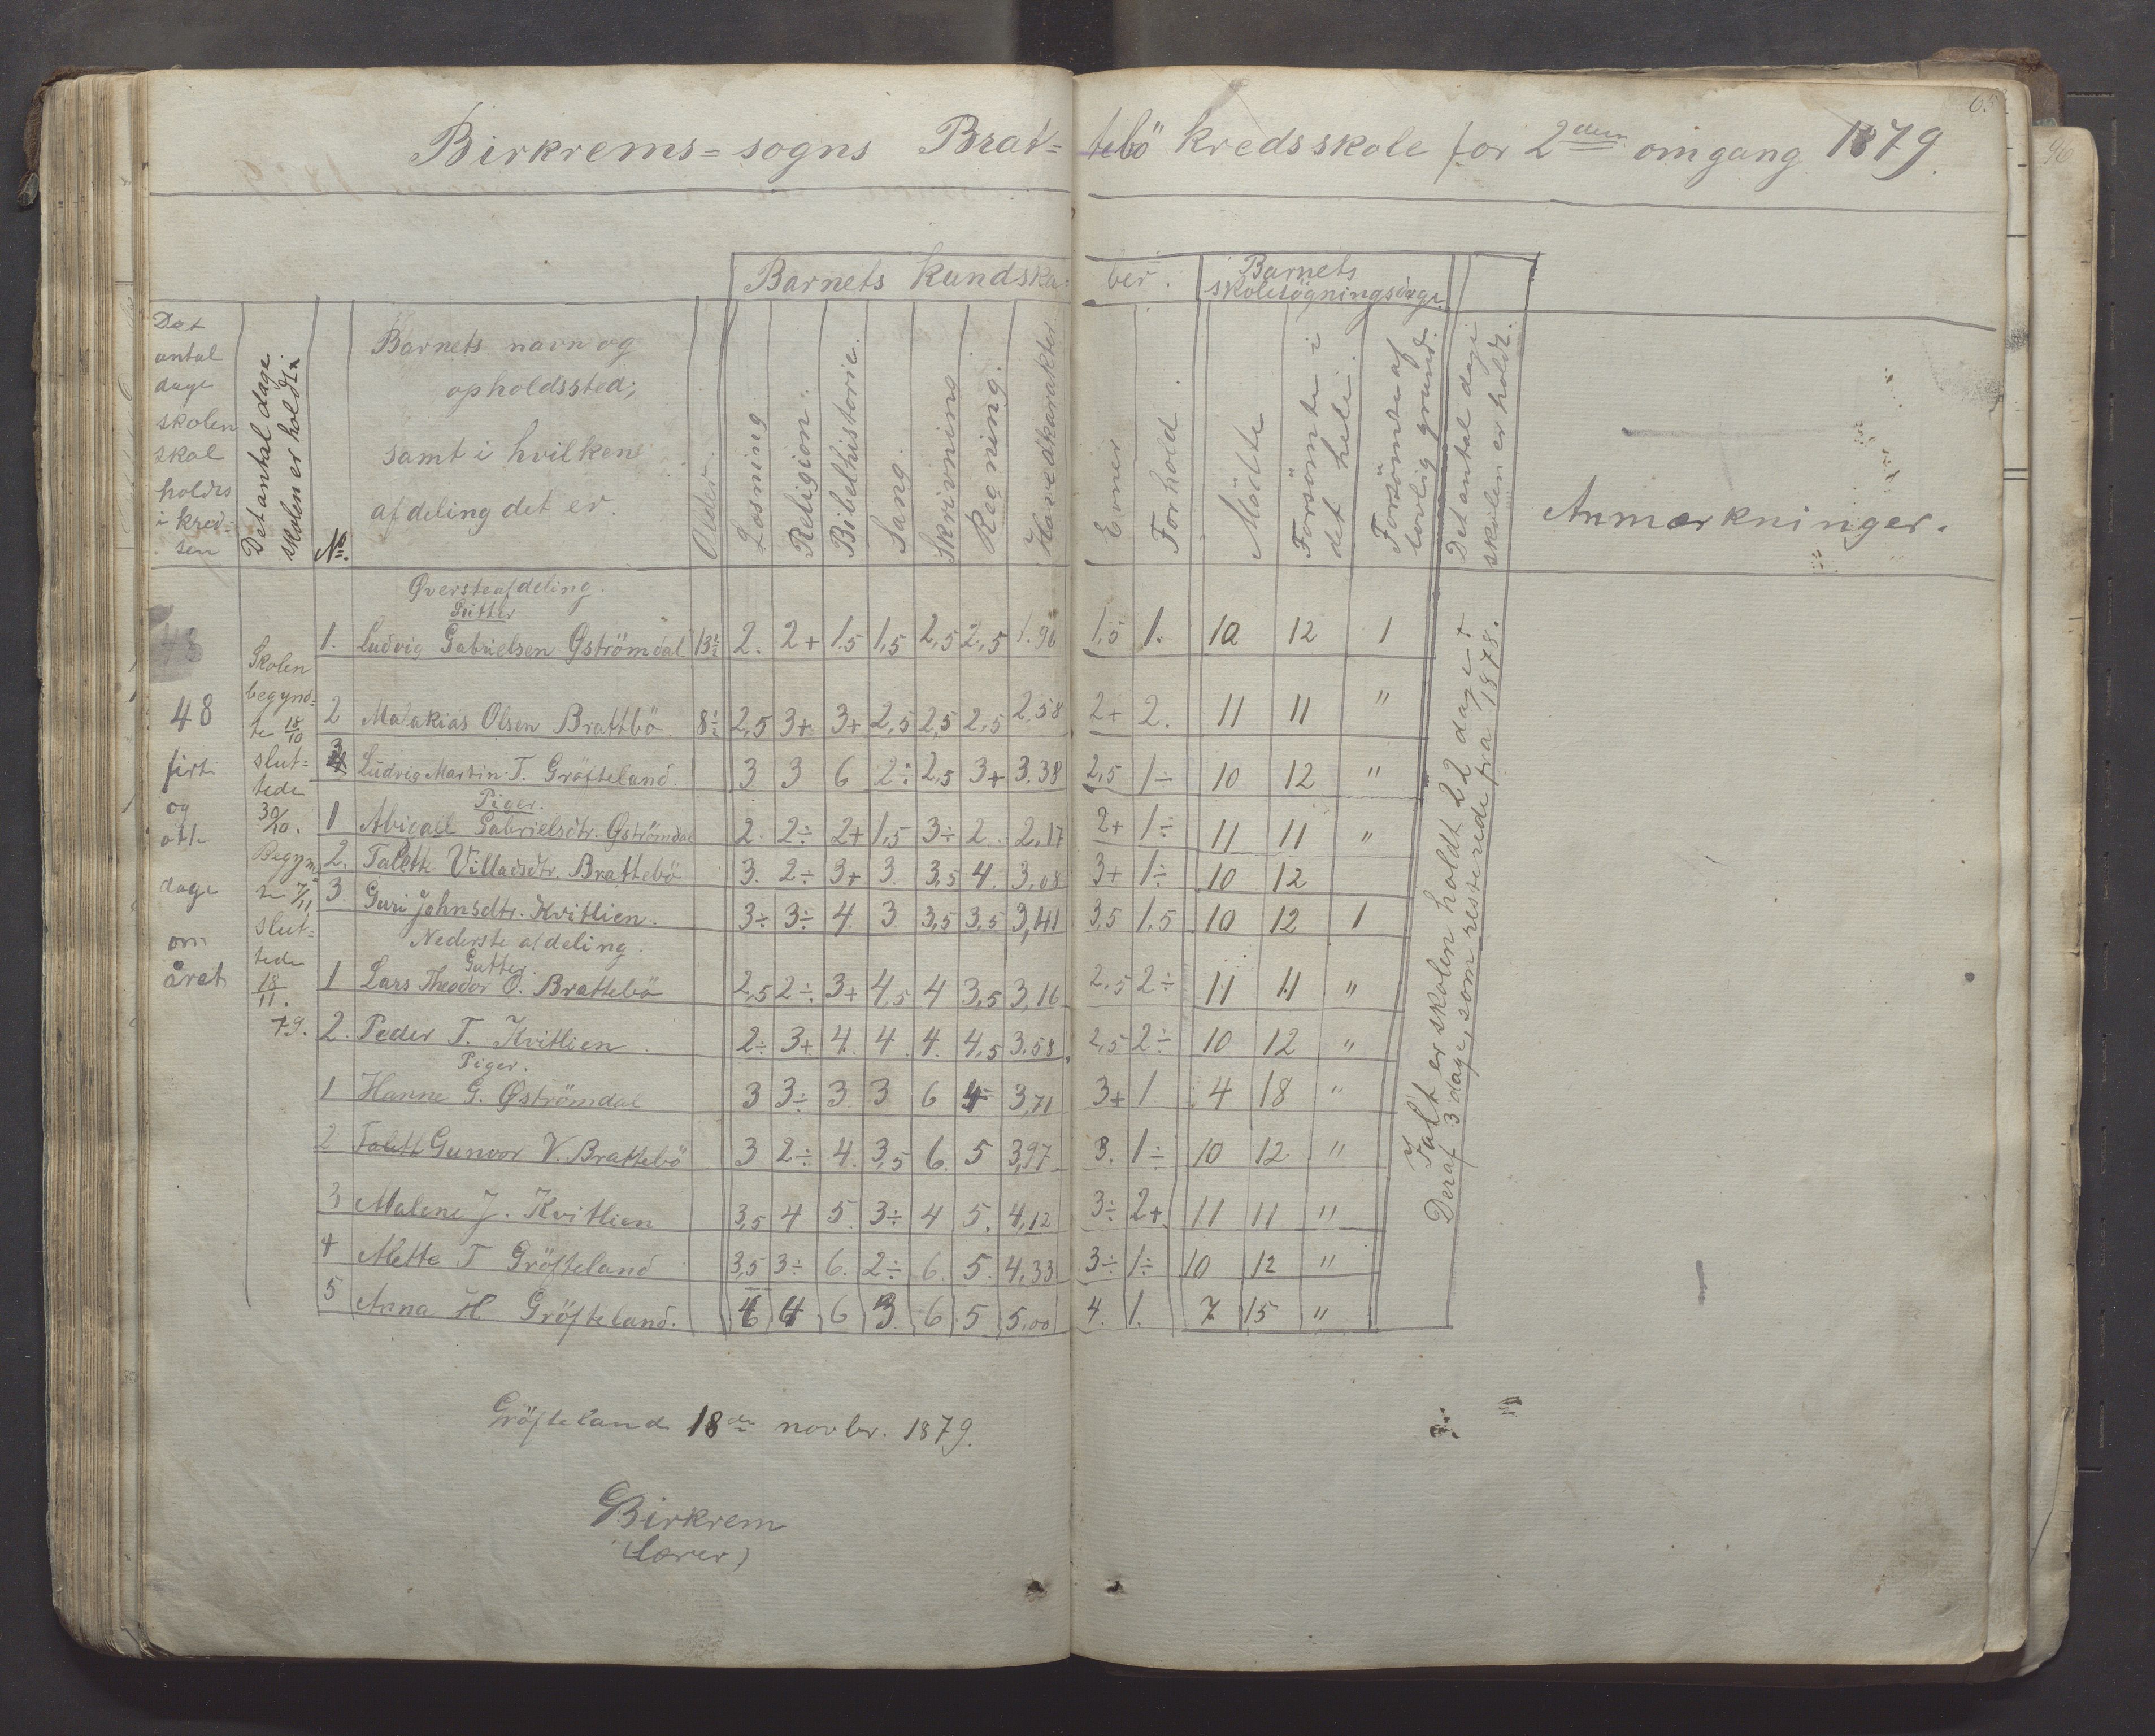 65
96
Birkrems=sogns Brat=tebö kredsskole for 2den omgang 1879.
Barnets Kundskaber.
Barnets skolesögningsdage
Det antal dage skolen skal holdes i kredsen
Det antal dage skolen er holdt.
No.
Barnets navn og opholdssted, samt i hvilken afdeling det er.
Alder.
Læsning
Religion.
Bibelhistorie.
Sang.
Skrivning
Regning.
Hovedkarakter
Evner
Forhold.
Mödte
Forsömte i det hele.
Forsömte af lovlig grund.
Det antal dage skolen er holdt.
Anmærkninger.
48
48 firti og otte dage om året
Skolen begynd=te 18/10 slut=tede 30/10. Begyn te 7/11 slut=tede 18/11. 79.
Øversteafdeling.
Gutter
1. Ludvig Gabrielsen Øströmdal 13½ 2. 2+ 1.5 1,5 2,5 2,5 1.96 1,5 1. 10 12 1
2 Malakias Olsen Brattbö 8½ 2,5 3+ 3+ 2,5 2,5 2,5 2,58 2+ 2. 11 11 "
3 Ludvig Martin T. Gröfteland. 3 3 6 2÷ 2,5 3+ 3.38 2,5 1÷ 10 12 "
Piger.
1 Abigael Gabrielsdtr. Øströmdal 2. 2÷ 2+ 1,5 3÷ 2. 2,17 2+ 1÷ 11 11 "
2. Talette Villadsdtr. Brattebö 3. 2÷ 3+ 3. 3,5 4. 3,08 3+ 1÷ 10 12
3. Guri Johnsdtr. Kvitlien. 3÷ 3÷ 4. 3 3,5 3,5 3,41 3,5 1.5 10 12 1
Nederste afdeling.
Gutter.
1 Lars Theodor O. Brattebö 2,5 2÷ 3+ 4,5 4 3,5 3,16 2,5 2÷ 11 11 "
2. Peder T. Kvitlien 2÷ 3+ 4. 4. 4. 4,5 3,58 2,5 2÷ 10 12 "
Piger.
1 Hanne G. Øströmdal 3 3÷ 3. 3 6 4 3,71 3+ 1. 4 18 "
2 Talett Gunvor V. Brattebö 3 2÷ 4. 3,5 6. 5 3,97 3. 1÷ 10 12 "
3 Malene J. Kvitlien 3,5 4 5. 3÷ 4 5. 4,12 3÷ 2+ 11 11 "
4 Mette T Gröfteland 3,5 3÷ 6. 2÷ 6. 5. 4,33 3÷ 1÷ 10 12 "
5 Anna H Gröfteland. 6 4 6 3. 6 5. 5,00 4. 1. 7 15 "
Ialt er skolen holdt 22 dage +
Deraf 3 dage, som resterede fra 1878.
Gröfteland 18de novbr. 1879.
Birkrem
(lærer)